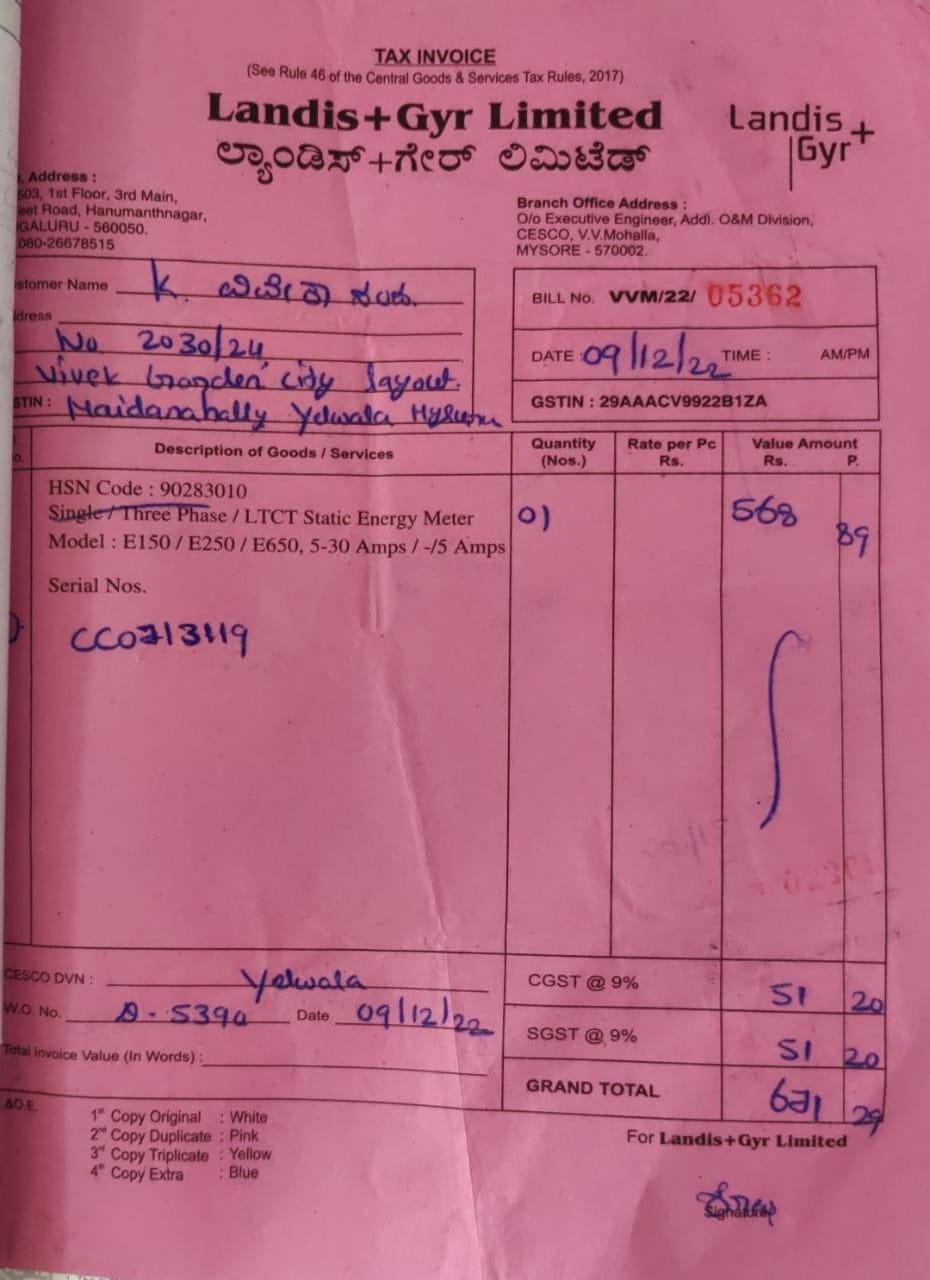 TAX INVOICE
(See Rule 46 of the Central Goods & Services Tax Rules, 2017)
Landis+Gyr Limited
ಲ್ಯಾಂಡಿಸ್+ಗೇರ್ ಲಿಮಿಟೆಡ್
Landis
Gyr+
. Address :
503, 1st Floor, 3rd Main,
eet Road, Hanumanthnagar,
GALURU - 560050.
080-26678515
Branch Office Address :
O/o Executive Engineer, Addl. O&M Division,
CESCO, V.V.Mohalla,
MYSORE - 570002.
stomer Name K.
dress
No 2030/24
Vivek Garden city layout.
STIN : Maidanahally Yelwala Mysuru
BILL No. VVM/22/ 05362
DATE : 09/12/22 TIME : AM/PM
GSTIN : 29AAACV9922B1ZA
o. Description of Goods / Services Quantity (Nos.) Rate per Pc Rs. Value Amount Rs. P.
HSN Code : 90283010
Single / Three Phase / LTCT Static Energy Meter 01 568 89
Model : E150 / E250 / E650, 5-30 Amps / -/5 Amps
Serial Nos.
CC0713119
CESCO DVN : Yelwala
W.O. No. Date 09/12/22
Total Invoice Value (In Words) :
CGST @ 9% 51 20
SGST @ 9% 51 20
GRAND TOTAL 671 29
&O.E.
1st Copy Original : White
2nd Copy Duplicate : Pink
3rd Copy Triplicate : Yellow
4th Copy Extra : Blue
For Landis+Gyr Limited
Signature